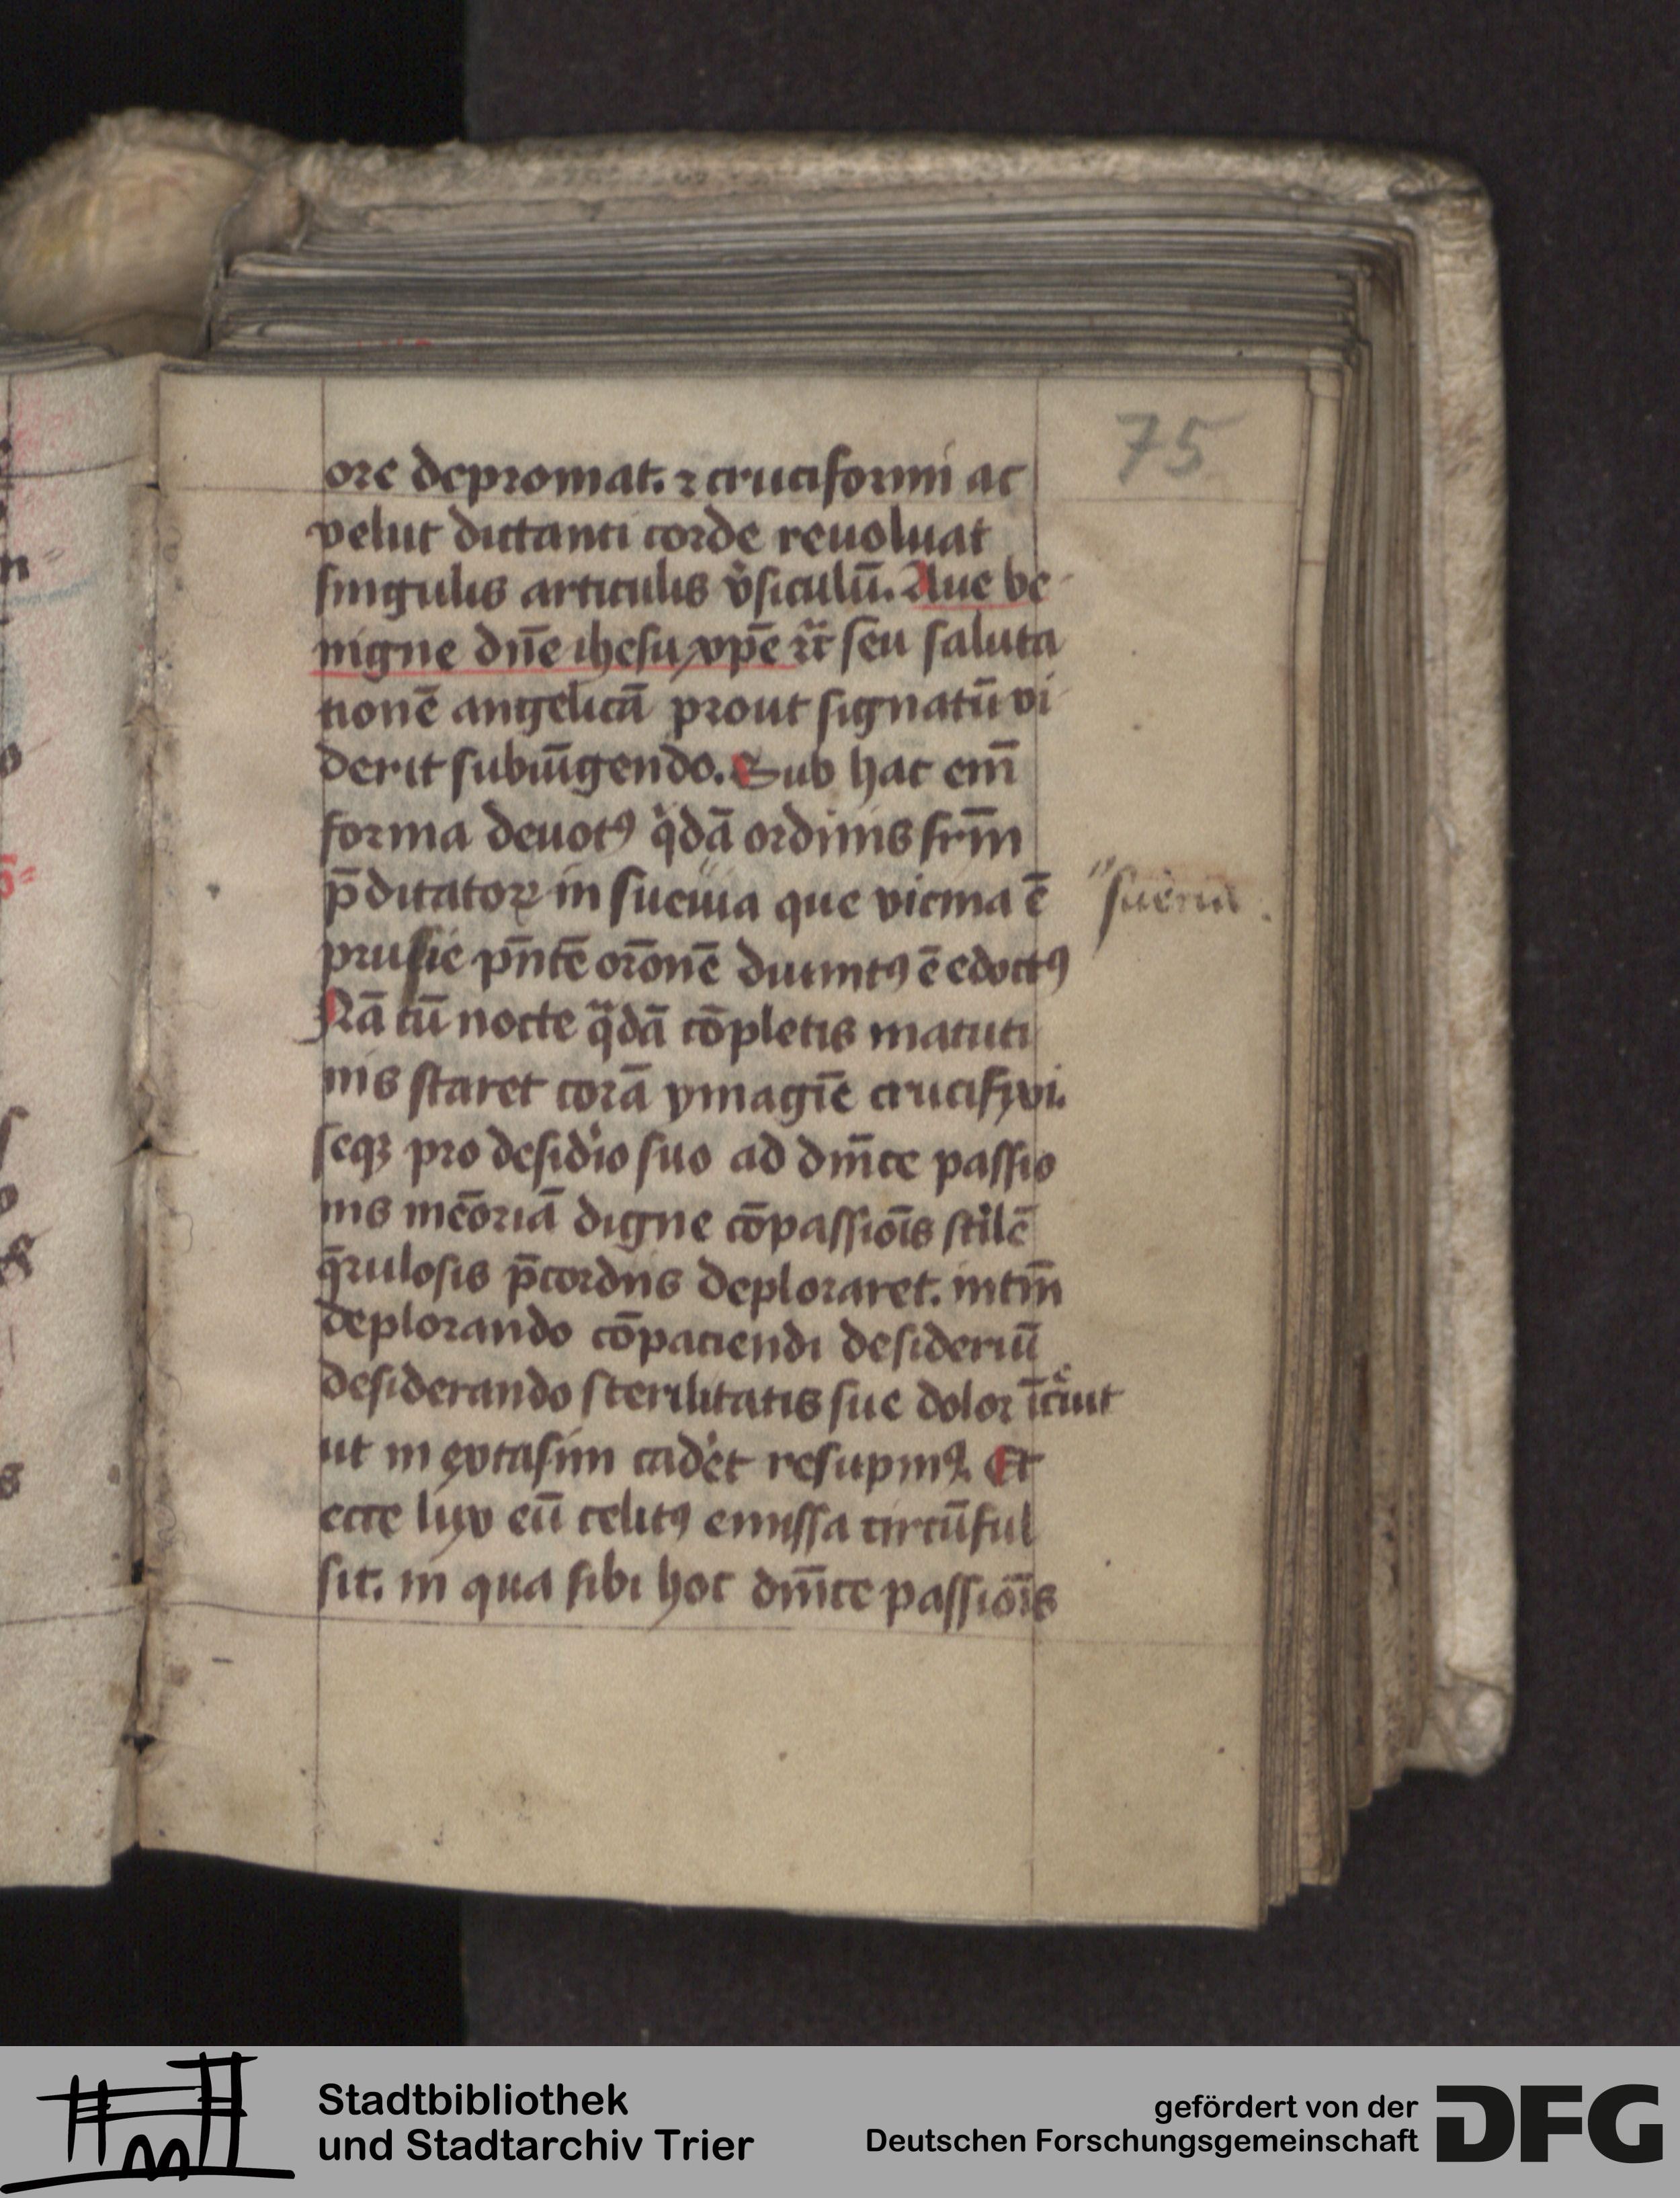 75
ore depromat. ⁊ cruciformi ac
velut dictanti corde reuoluat
singulis articulis v̾siculū. Aue be-
nigne dn̄e ihesu xp̄e ⁊c̄ seu saluta
tionē angelicā prout signatū vi-
derit subiūgendo. Sub hac em̄
forma deuotꝰ qͥdā ordinis fr̄m
p̄dicatoꝝ in sueuia que vicina ē
"sueuia.
prusie pn̄tē or̄onē diuinitꝰ ē edoctꝰ
Nā cū nocte qͣdā cōpletis matuti
nis staret corā ymagīe crucifixi.
seqꝫ pro desid̾io suo ad dn̄ice passio
nis mēoriā digne cōpassiōis st̾ilē
q̄rulosis p̄cordiis deploraret. int̄m
deplorando cōpaciendi desideriū
desiderando sterilitatis sue dolor īc̾uit
ut in extasim cad̾et resupinꝰ. Et
ecce lux eū celitꝰ emissa circūful
sit. in qua sibi hoc dn̄ice passiōis
Stadtbibliothek
und Stadtarchiv Trier
gefördert von der
Deutschen Forschungsgemeinschaft
DFG